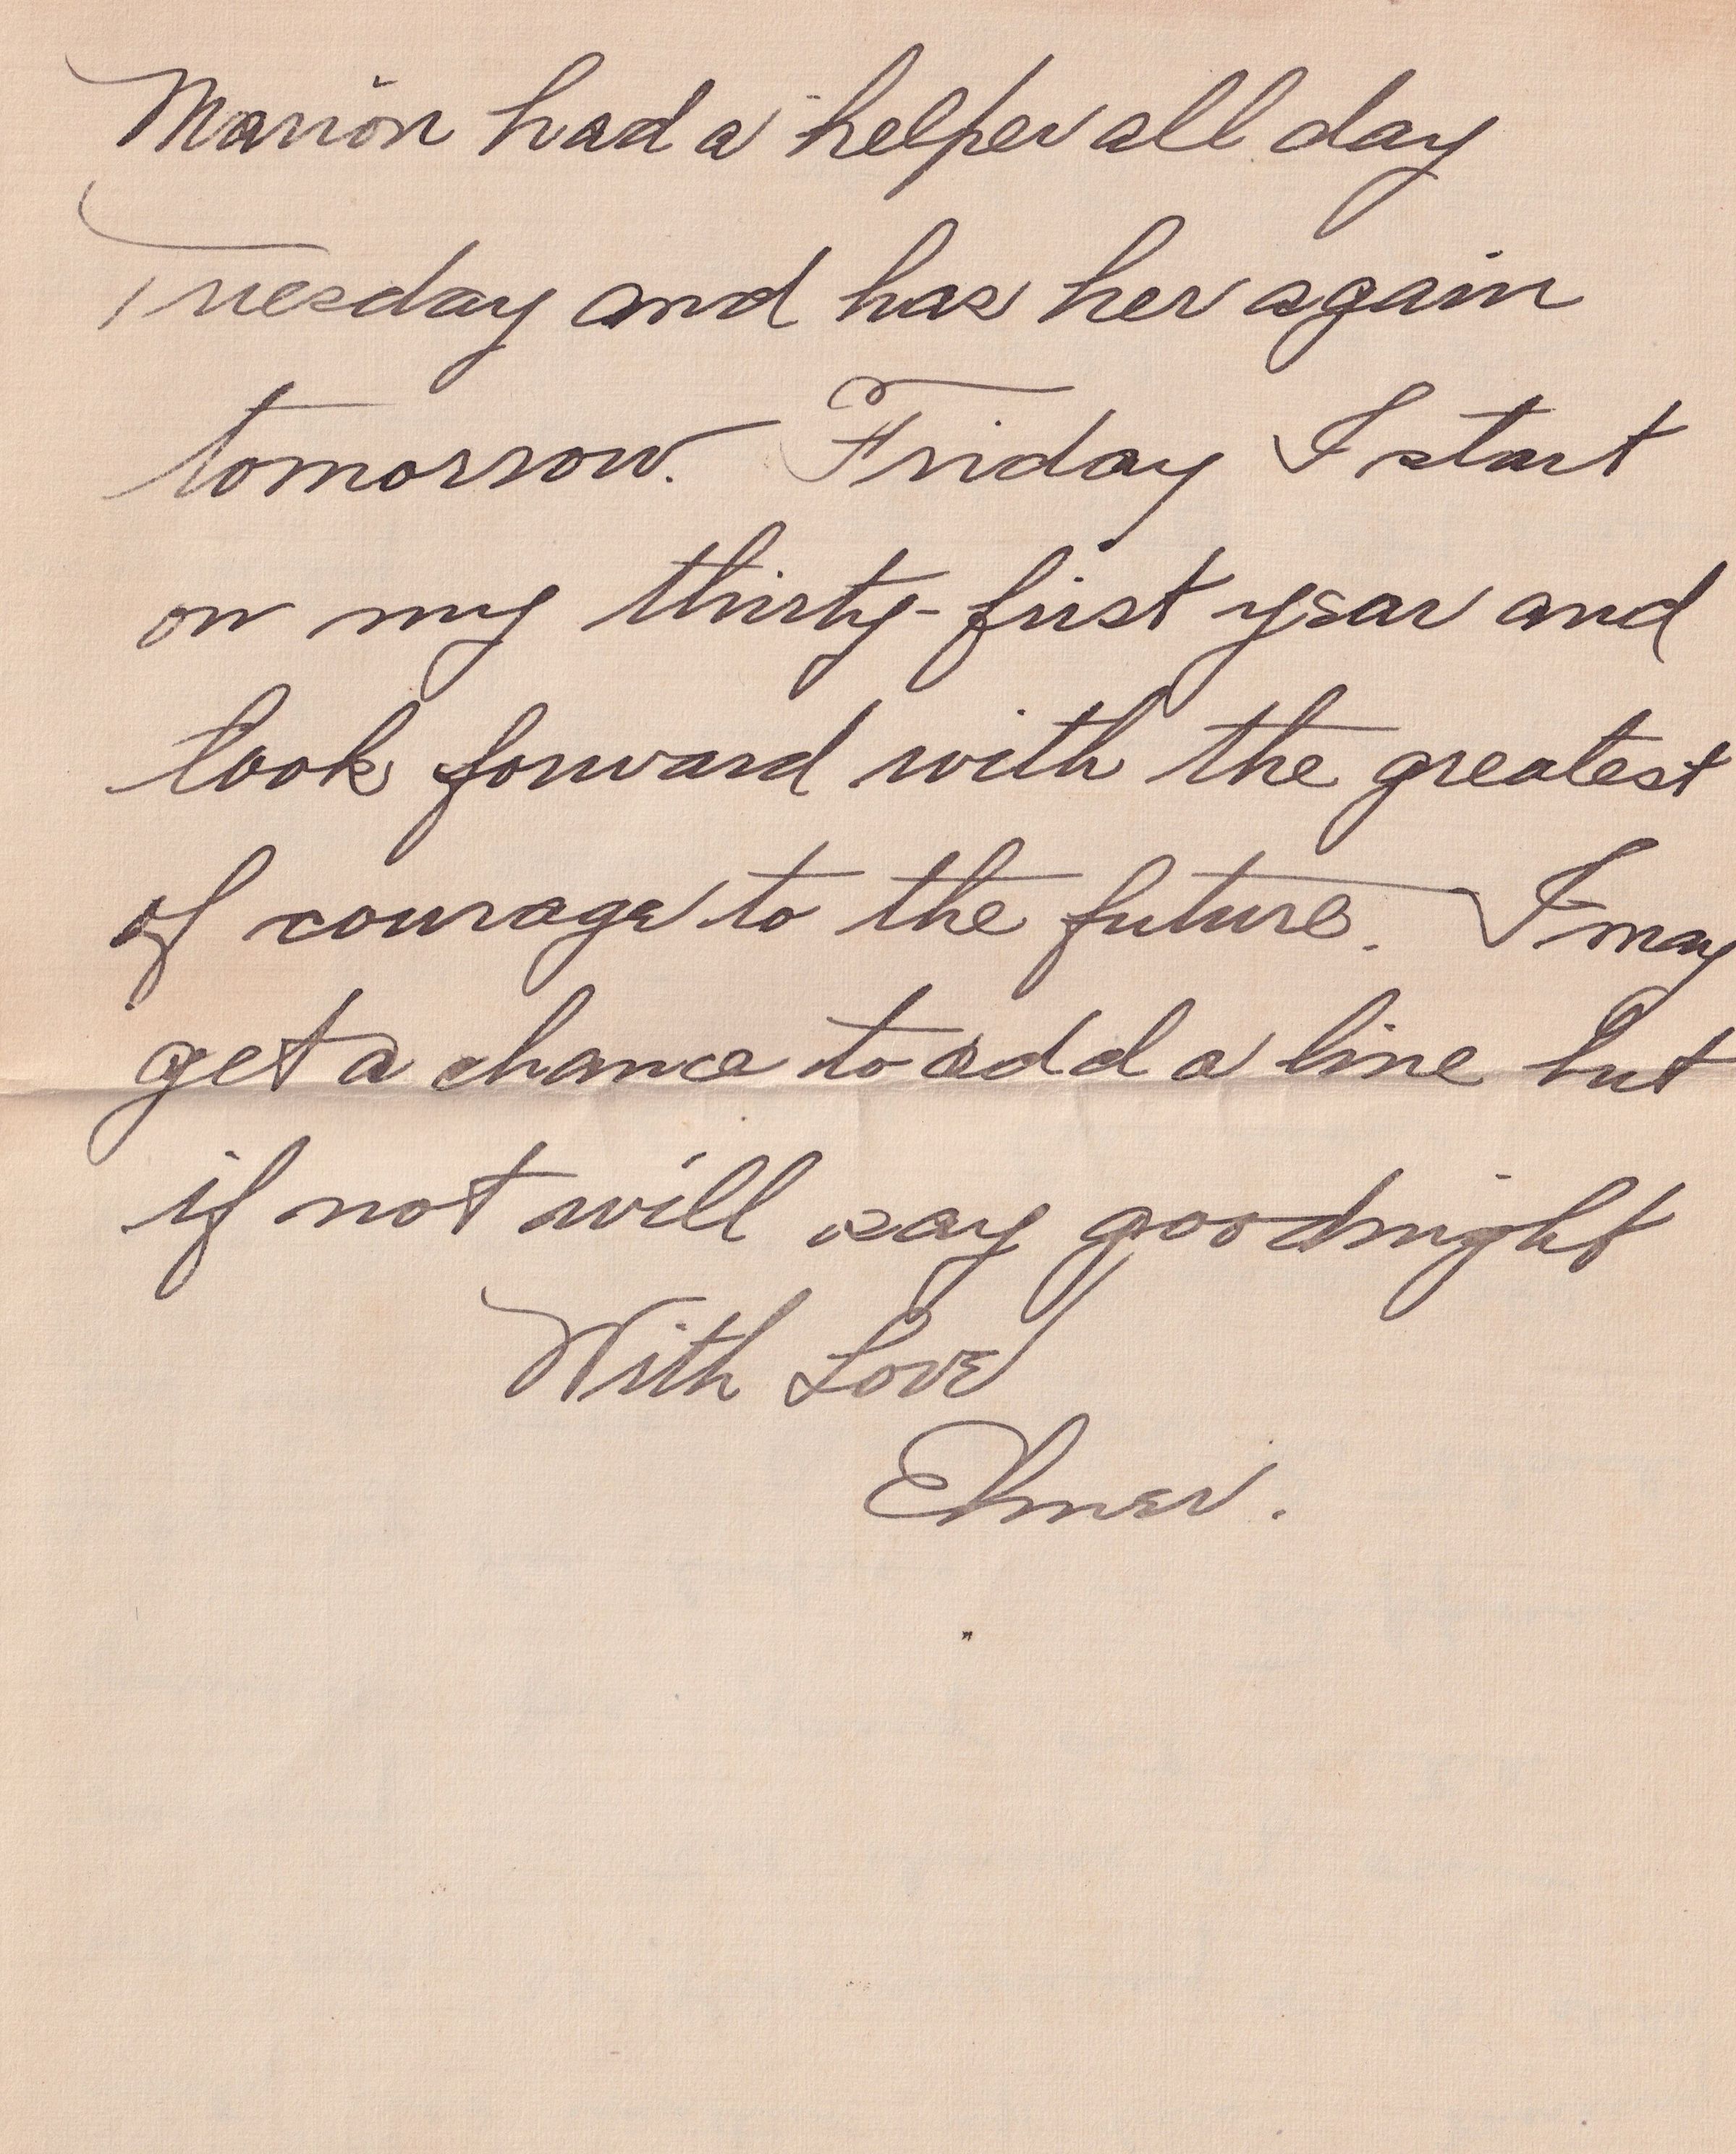 Marion had a helper all day
Tuesday and has her again
tomorrow. Friday I start
on my thirty-first year and
look forward with the greatest
of courage to the future. I may
get a chance to add a line but
if not will say goodnight
With Love
Elmer.